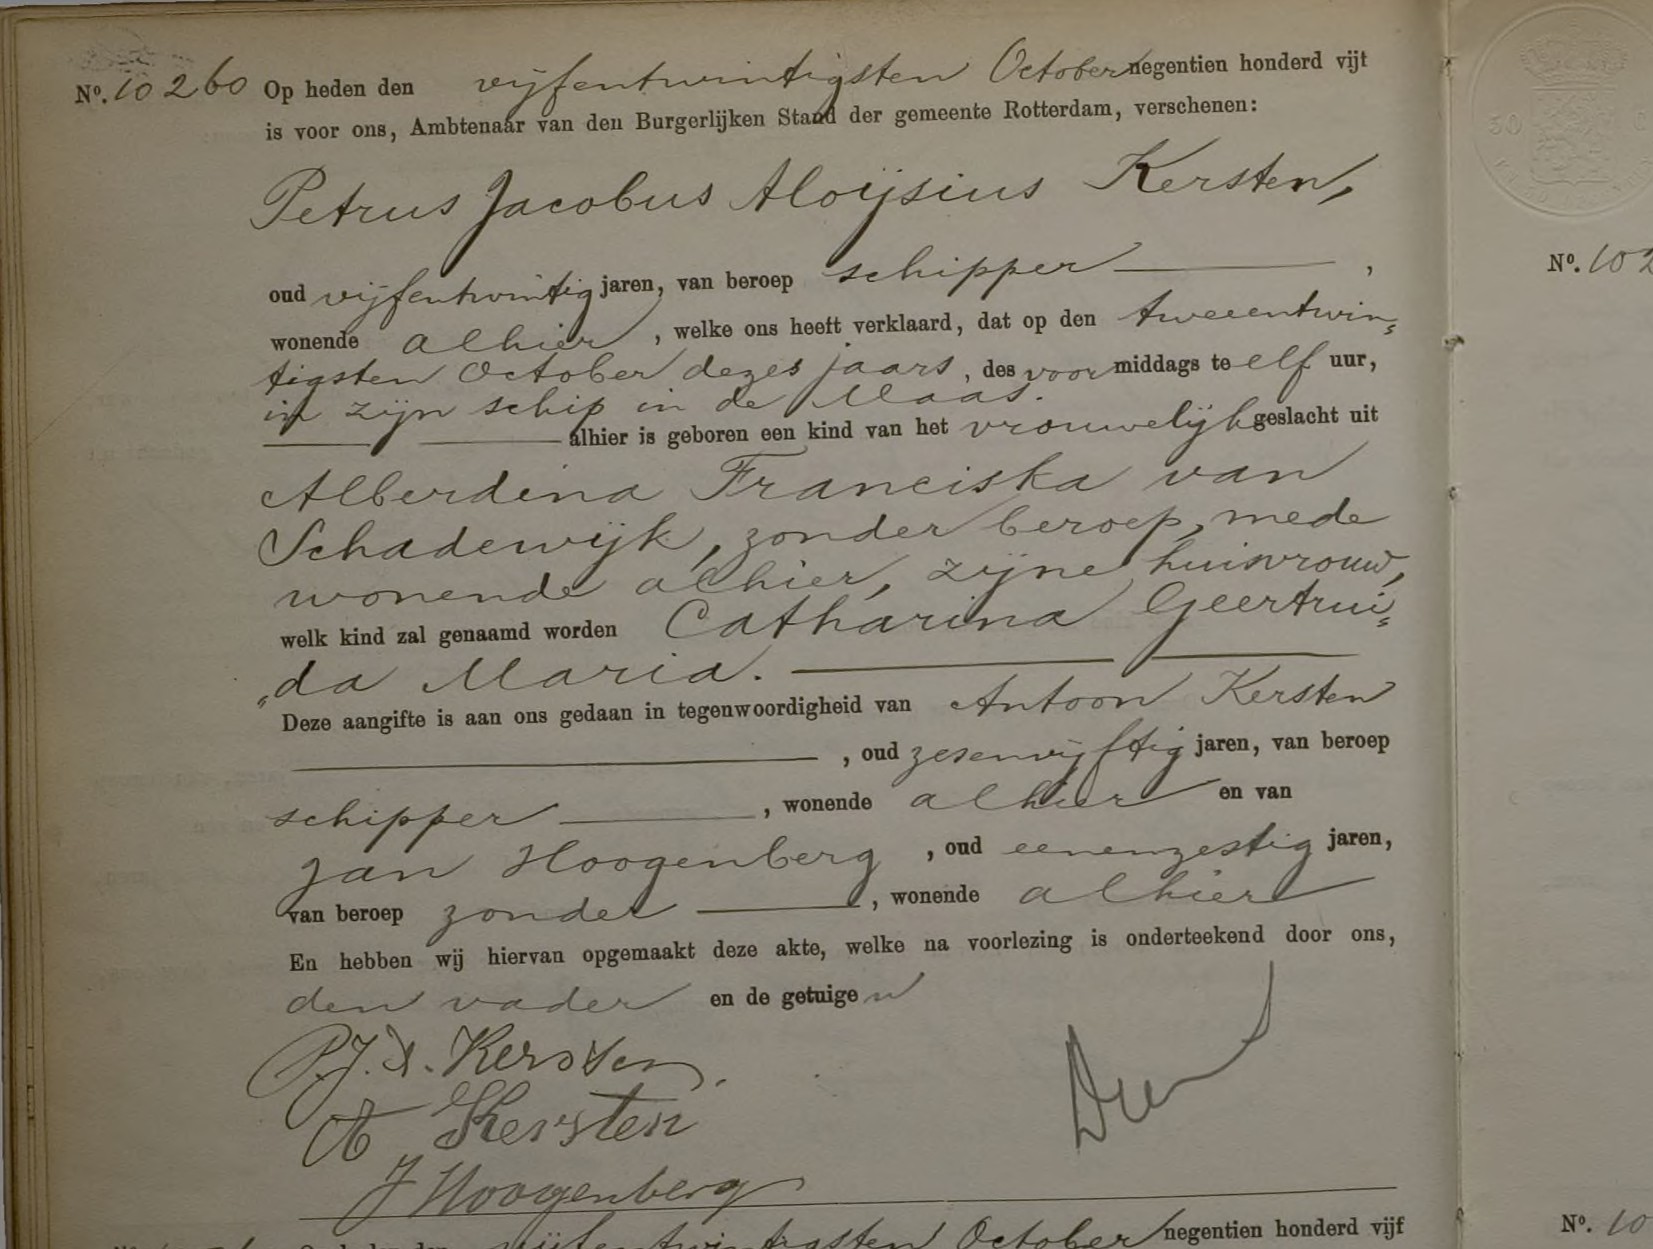 Nº. 10260 Op heden den vijfentwintigsten October negentien honderd vijf
is voor ons, Ambtenaar van den Burgerlijken Stand der gemeente Rotterdam, verschenen:
Petrus Jacobus Aloijsius Kersten,
oud vijfentwintig jaren, van beroep schipper ,
wonende alhier , welke ons heeft verklaard, dat op den tweeentwin„
tigsten October dezes jaars, des voormiddags te elf uur,
in zijn schip in de Maas.
alhier is geboren een kind van het vrouwelijk geslacht uit
Alberdina Franciska van
Schadewijk, zonder beroep, mede
wonende alhier, zijne huisvrouw,
welk kind zal genaamd worden Catharina Geertrui„
„da Maria.
Deze aangifte is aan ons gedaan in tegenwoordigheid van Antoon Kersten
, oud zesenvijftig jaren, van beroep
schipper , wonende alhier en van
Jan Hoogenberg , oud eenenzestig jaren,
van beroep zonder , wonende alhier
En hebben wij hiervan opgemaakt deze akte, welke na voorlezing is onderteekend door ons,
den vader en de getuigen
P.J.A. Kersten.
A Kersten
J Hoogenberg
vijfentwintigsten October negentien honderd vijf
Nº. 102
Nº. 10